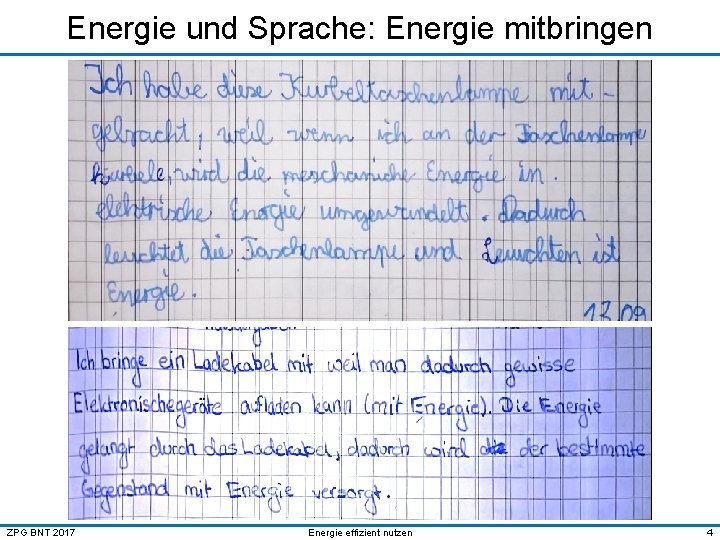 Energie und Sprache: Energie mitbringen
Ich habe diese Kurbeltaschenlampe mit-
gebracht, weil wenn ich an der Taschenlampe
kurbele, wird die meschaniche Energie in
elektrische Energie umgewandelt. Dadurch
leuchtet die Taschenlampe und Leuchten ist
Energie.
17.09
Ich bringe ein Ladekabel mit weil man dadurch gewisse
Elektronischegeräte aufladen kann (mit Energie). Die Energie
gelangt durch das Ladekabel, dadurch wird der bestimmte
Gegenstand mit Energie versorgt.
ZPG BNT 2017
Energie effizient nutzen
4